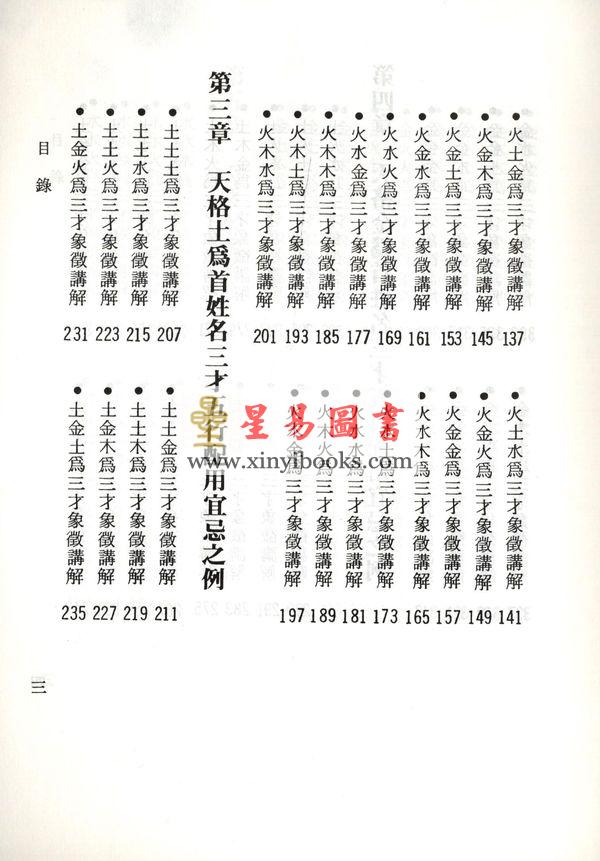 ●火土金爲三才象徵講解 137
●火土水爲三才象徵講解 141
●火金木爲三才象徵講解 145
●火金火爲三才象徵講解 149
●火金土爲三才象徵講解 153
●火金金爲三才象徵講解 157
●火金水爲三才象徵講解 161
●火水木爲三才象徵講解 165
●火水火爲三才象徵講解 169
●火土爲三才象徵講解 173
●火水金爲三才象徵講解 177
●火水水爲三才象徵講解 181
●火木木爲三才象徵講解 185
●火木火爲三才象徵講解 189
●火木土爲三才象徵講解 193
●火金爲三才象徵講解 197
●火木水爲三才象徵講解 201
第三章 天格土爲首姓名三才五行配用宜忌之例
●土土土爲三才象徵講解 207
●土土金爲三才象徵講解 211
●土土水爲三才象徵講解 215
●土土木爲三才象徵講解 219
●土土火爲三才象徵講解 223
●土金木爲三才象徵講解 227
●土金火爲三才象徵講解 231
●土金土爲三才象徵講解 235
目錄
三
星易圖書
www.xinyibooks.com